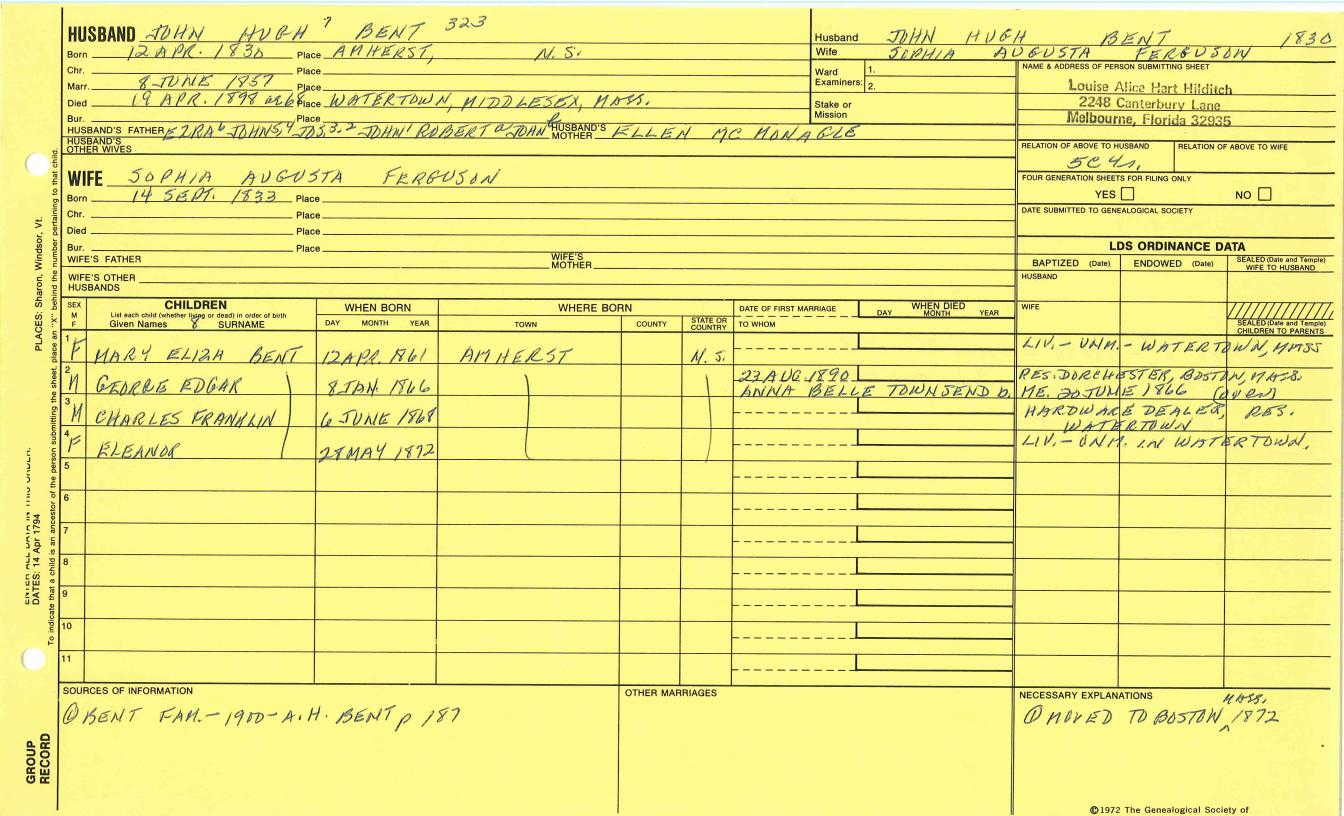 HUSBAND JOHN HUGH 7 BENT 323
Born 12 APR. 1830 Place AMHERST, N.S.
Chr. Place
Marr. 8 JUNE 1857 Place
Died 19 APR. 1898 Place WATERTOWN, MIDDLESEX, MASS.
Bur. Place
HUSBAND'S FATHER EZRA6 JOHN5,4 JOS3,2 JOHN1 ROBERT a JOAN HUSBAND'S MOTHER ELLEN MC MONAGLE
HUSBAND'S OTHER WIVES
WIFE SOPHIA AUGUSTA FERGUSON
Born 14 SEPT. 1833 Place
Chr. Place
Died Place
Bur. Place
WIFE'S FATHER WIFE'S MOTHER
WIFE'S OTHER HUSBANDS
Husband JOHN HUGH BENT 1830
Wife SOPHIA AUGUSTA FERGUSON
Ward Examiners: 1.
2.
Stake or Mission
NAME & ADDRESS OF PERSON SUBMITTING SHEET
Louise Alice Hart Hilditch
2248 Canterbury Lane
Melbourne, Florida 32935
RELATION OF ABOVE TO HUSBAND RELATION OF ABOVE TO WIFE
5C 4
FOUR GENERATION SHEETS FOR FILING ONLY
YES NO
DATE SUBMITTED TO GENEALOGICAL SOCIETY
LDS ORDINANCE DATA
BAPTIZED (Date) ENDOWED (Date) SEALED (Date and Temple) WIFE TO HUSBAND
HUSBAND
WIFE
SEALED (Date and Temple) CHILDREN TO PARENTS
SEX M F
CHILDREN
List each child (whether living or dead) in order of birth
Given Names 8 SURNAME
WHEN BORN
DAY MONTH YEAR
WHERE BORN
TOWN COUNTY STATE OR COUNTRY
DATE OF FIRST MARRIAGE
TO WHOM
WHEN DIED
DAY MONTH YEAR
1 F MARY ELIZA BENT 12 APR. 1861 AMHERST N.S. LIV. - UNM. - WATERTOWN, MASS
2 M GEORGE EDGAR 8 JAN 1866 23 AUG 1890 RES. DORCHESTER, BOSTON, MASS.
ANNA BELLE TOWNSEND b. ME. 20 JUNE 1866 (OVER)
3 M CHARLES FRANKLIN 6 JUNE 1868 HARDWARE DEALER, RES. WATERTOWN
4 F ELEANOR 28 MAY 1872 LIV. - UNM. IN WATERTOWN.
5
6
7
8
9
10
11
SOURCES OF INFORMATION
① BENT FAM. - 1900 - A.H. BENT p 187
OTHER MARRIAGES
NECESSARY EXPLANATIONS
① MOVED TO BOSTON, MASS. 1872
©1972 The Genealogical Society of
PLACES: Sharon, Windsor, Vt.
To indicate that a child is an ancestor of the person submitting the sheet, place an "X" behind the number pertaining to that child.
ENTER ALL DATA IN THIS ORDER:
DATES: 14 Apr 1794
GROUP RECORD